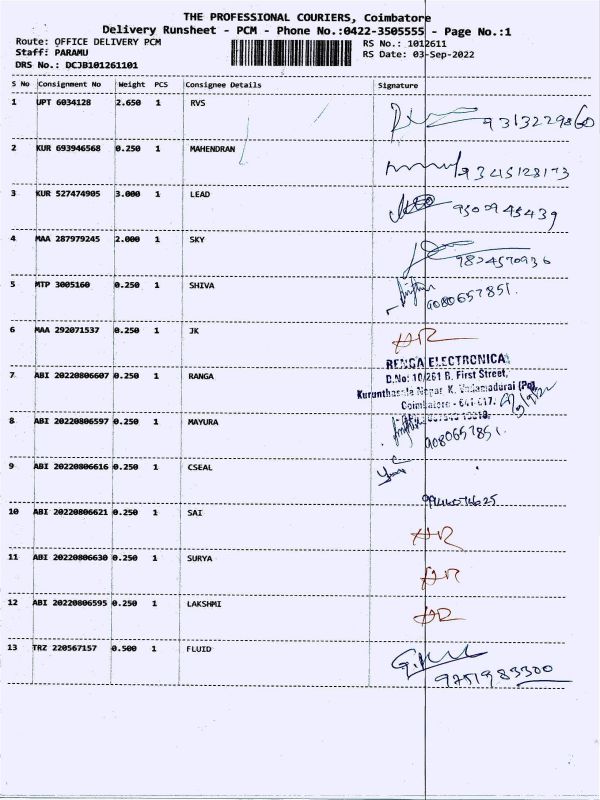 THE PROFESSIONAL COURIERS, Coimbatore
Delivery Runsheet - PCM - Phone No.:0422-3505555 - Page No.:1
Route: OFFICE DELIVERY PCM RS No.: 1012611
Staff: PARAMU RS Date: 03-Sep-2022
DRS No.: DCJB101261101
S No Consignment No Weight PCS Consignee Details Signature
1 UPT 6034128 2.650 1 RVS 9313229860
2 KUR 693946568 0.250 1 MAHENDRAN 9345128173
3 KUR 527474905 3.000 1 LEAD 9500945439
4 MAA 287979245 2.000 1 SKY 9824570936
5 MTP 3005160 0.250 1 SHIVA 9080657851.
6 MAA 292071537 0.250 1 JK
RENGA ELECTRONICA
D.No: 10/261 B, First Street,
7 ABI 20220806607 0.250 1 RANGA
Nagar, K. Vadamadurai (Po),
Coimbatore - 641 017.
8 ABI 20220806597 0.250 1 MAYURA 9080657851.
9 ABI 20220806616 0.250 1 CSEAL 9944074625
10 ABI 20220806621 0.250 1 SAI
11 ABI 20220806630 0.250 1 SURYA
12 ABI 20220806595 0.250 1 LAKSHMI
13 TRZ 220567157 0.500 1 FLUID 9751983300